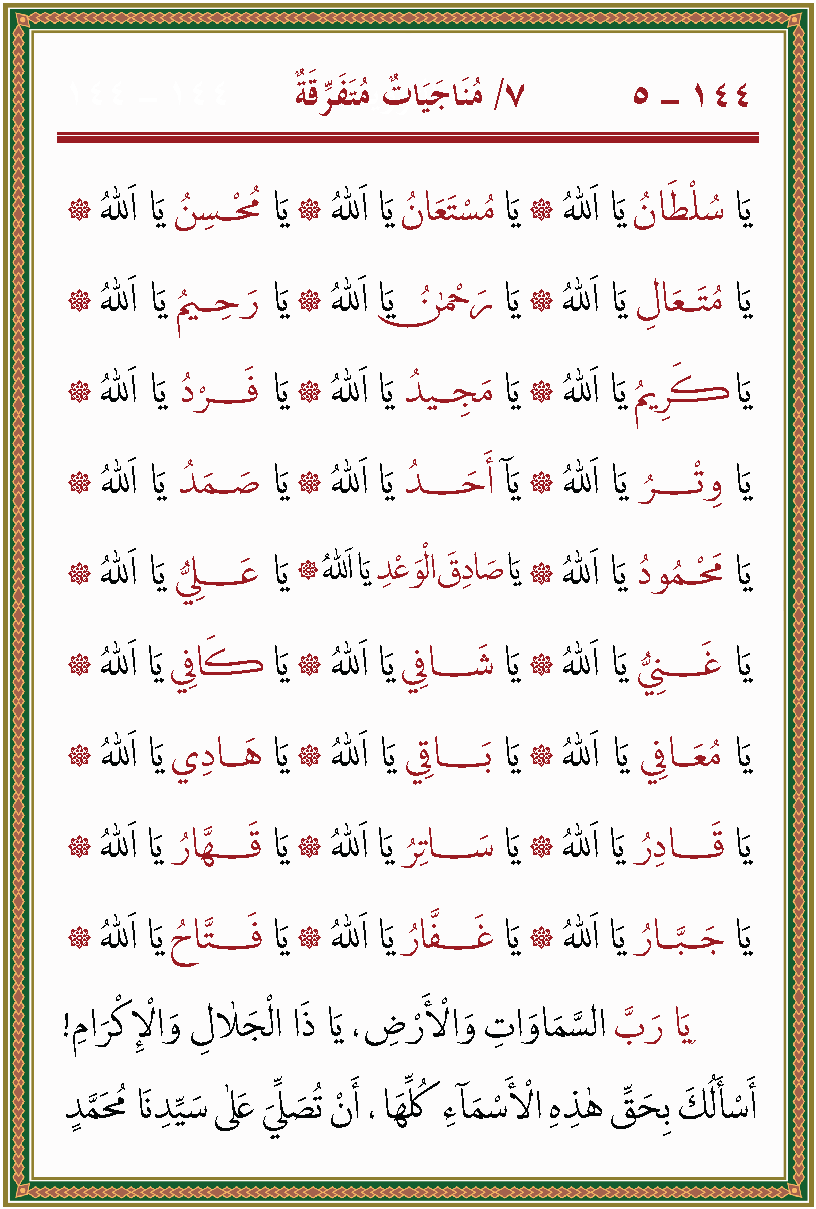 ١٤٤ – ٥ ٧/ مُنَاجَيَاتٌ مُتَفَرِّقَةٌ
يَا سُلْطَانُ يَا اَللهُ ۞ يَا مُسْتَعَانُ يَا اَللهُ ۞ يَا مُحْسِنُ يَا اَللهُ ۞
يَا مُتَعَالِ يَا اَللهُ ۞ يَا رَحْمٰنُ يَا اَللهُ ۞ يَا رَحِيمُ يَا اَللهُ ۞
يَا كَرِيمُ يَا اَللهُ ۞ يَا مَجِيدُ يَا اَللهُ ۞ يَا فَرْدُ يَا اَللهُ ۞
يَا وِتْرُ يَا اَللهُ ۞ يَآ أَحَدُ يَا اَللهُ ۞ يَا صَمَدُ يَا اَللهُ ۞
يَا مَحْمُودُ يَا اَللهُ ۞ يَا صَادِقَ الْوَعْدِ يَا اَللهُ ۞ يَا عَلِيُّ يَا اَللهُ ۞
يَا غَنِيُّ يَا اَللهُ ۞ يَا شَافِي يَا اَللهُ ۞ يَا كَافِي يَا اَللهُ ۞
يَا مُعَافِي يَا اَللهُ ۞ يَا بَاقِي يَا اَللهُ ۞ يَا هَادِي يَا اَللهُ ۞
يَا قَادِرُ يَا اَللهُ ۞ يَا سَاتِرُ يَا اَللهُ ۞ يَا قَهَّارُ يَا اَللهُ ۞
يَا جَبَّارُ يَا اَللهُ ۞ يَا غَفَّارُ يَا اَللهُ ۞ يَا فَتَّاحُ يَا اَللهُ ۞
يَا رَبَّ السَّمَاوَاتِ وَالْأَرْضِ، يَا ذَا الْجَلَالِ وَالْإِكْرَامِ!
أَسْأَلُكَ بِحَقِّ هٰذِهِ الْأَسْمَآءِ كُلِّهَا، أَنْ تُصَلِّيَ عَلٰى سَيِّدِنَا مُحَمَّدٍ